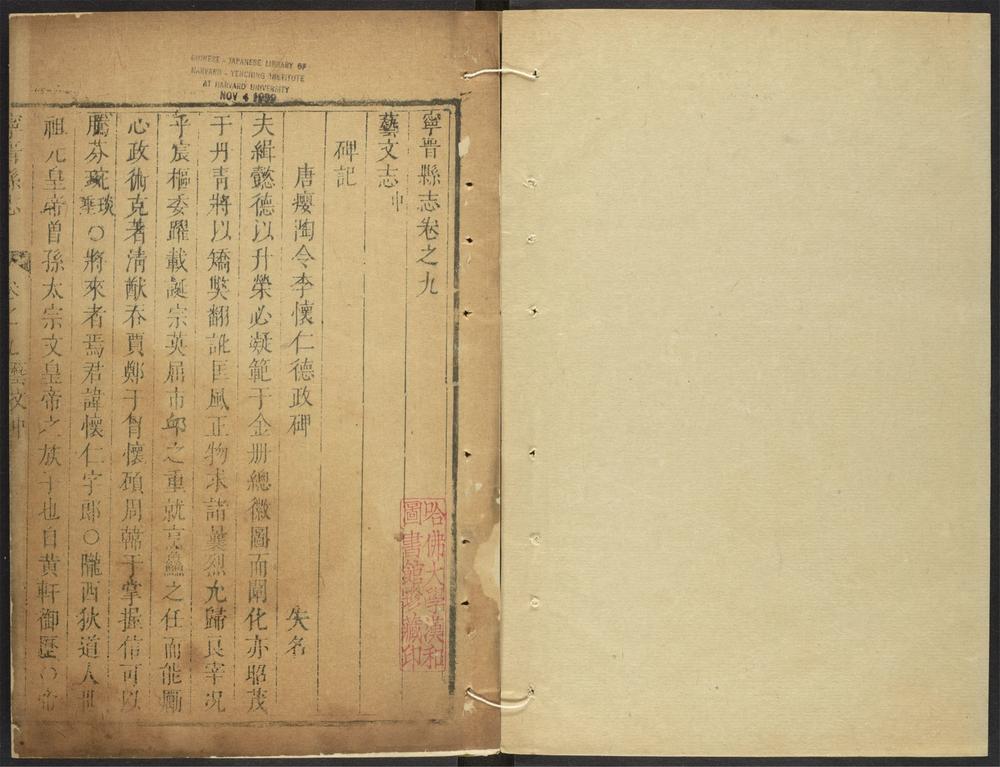 CHINESE - JAPANESE LIBRARY OF
HARVARD - YENCHING INSTITUTE
AT HARVARD UNIVERSITY
NOV 4 1939
寧晉縣志卷之九
藝文志中
碑記
唐癭陶令李懷仁德政碑 失名
夫緝懿德以升榮必凝範于金册總徽圖而闡化亦昭茂
于丹靑將以矯弊翻訛匡風正物求諸曩烈允歸良宰况
乎宸樞委躍載誕宗英屈市邱之重就烹鱻之任而能勵
心政術克著淸猷吞賈鄭于胷懷碩周韓于掌握信可以
騰芬琬琰 〇將來者焉君諱懷仁字郎〇隴西狄道人
祖元皇帝曾孫太宗文皇帝之族子也自黄軒御歷〇帝
寧晉縣志 卷之九藝文中
哈佛大學漢和
圖書館珍藏印